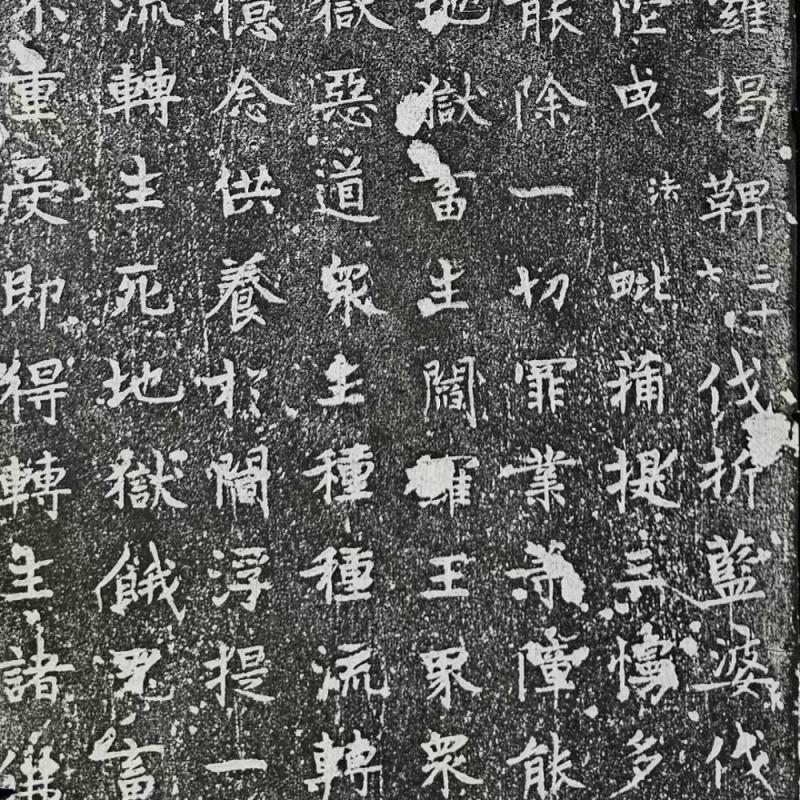 羅揭鞞三十七伐折藍婆伐
曳法毗蒱提三多
能除一切罪業等障能
地獄畜生閻羅王界衆
獄惡道衆生種種流轉
憶念供養於閻浮提一
流轉生死地獄餓鬼畜
不重受即得轉生諸佛